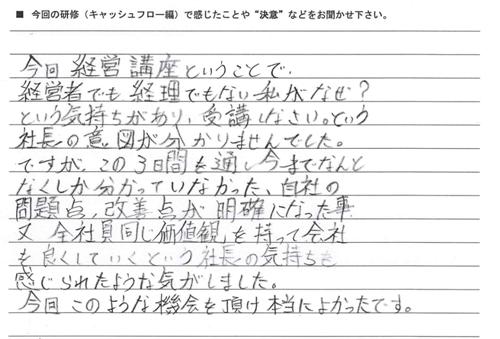 ■ 今回の研修（キャッシュフロー編）で感じたことや“決意”などをお聞かせ下さい。
今回 経営講座ということで、
経営者でも 経理でもない私がなぜ？
という気持ちがあり、受講しなさい。という
社長の意図が分かりませんでした。
ですが、この3日間を通し 今までなんと
なくしか分かっていなかった、自社の
問題点、改善点が 明確になった事
又 全社員同じ価値観を持って会社
を良くしていくという社長の気持ちを
感じられたような気がしました。
今回 このような機会を頂け 本当によかったです。